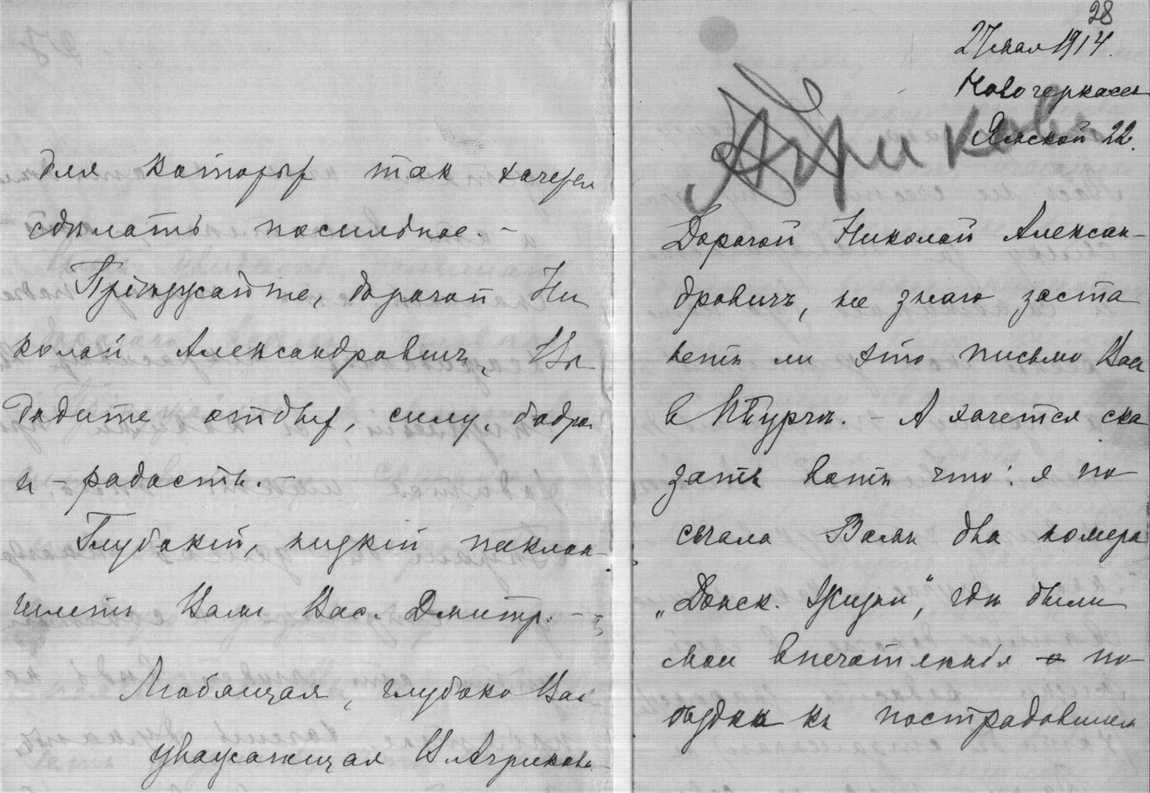 для которых так хочется
сдѣлать посильное. -
Дорогой Ни
колай Александровичъ, Вы
дадите отдых, силу, бодро
и - радость. -
Глубокій, низкій поклон
шлетъ Вамъ Вас. Дмитр. -
Любящая, глубоко Вас
уважающая Агрикова
28
27 мая 1914.
Новочеркасск
Ямской 22.
Агрикова
Дорогой Николай Алексан-
дровичъ, не знаю заста
нетъ ли это письмо Вас
в Птург. - А хочется ска
зать вотъ что: я по
слала Вамъ два номера
„Донск. Жизни", гдѣ были
мои впечатлѣнія о по
ѣздкѣ къ пострадавшим